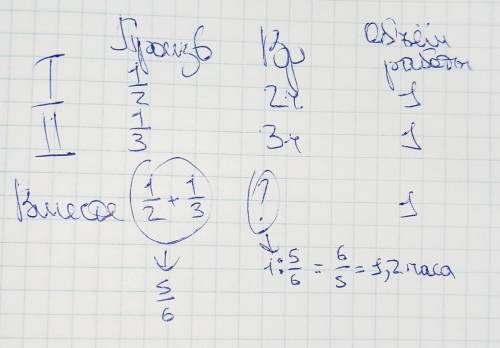 Произв Вр Объём работы
I 1/2 2ч 1
II 1/3 3ч 1
Вместе 1/2 + 1/3 ? 1
5/6
1 : 5/6 = 6/5 = 1,2 часа